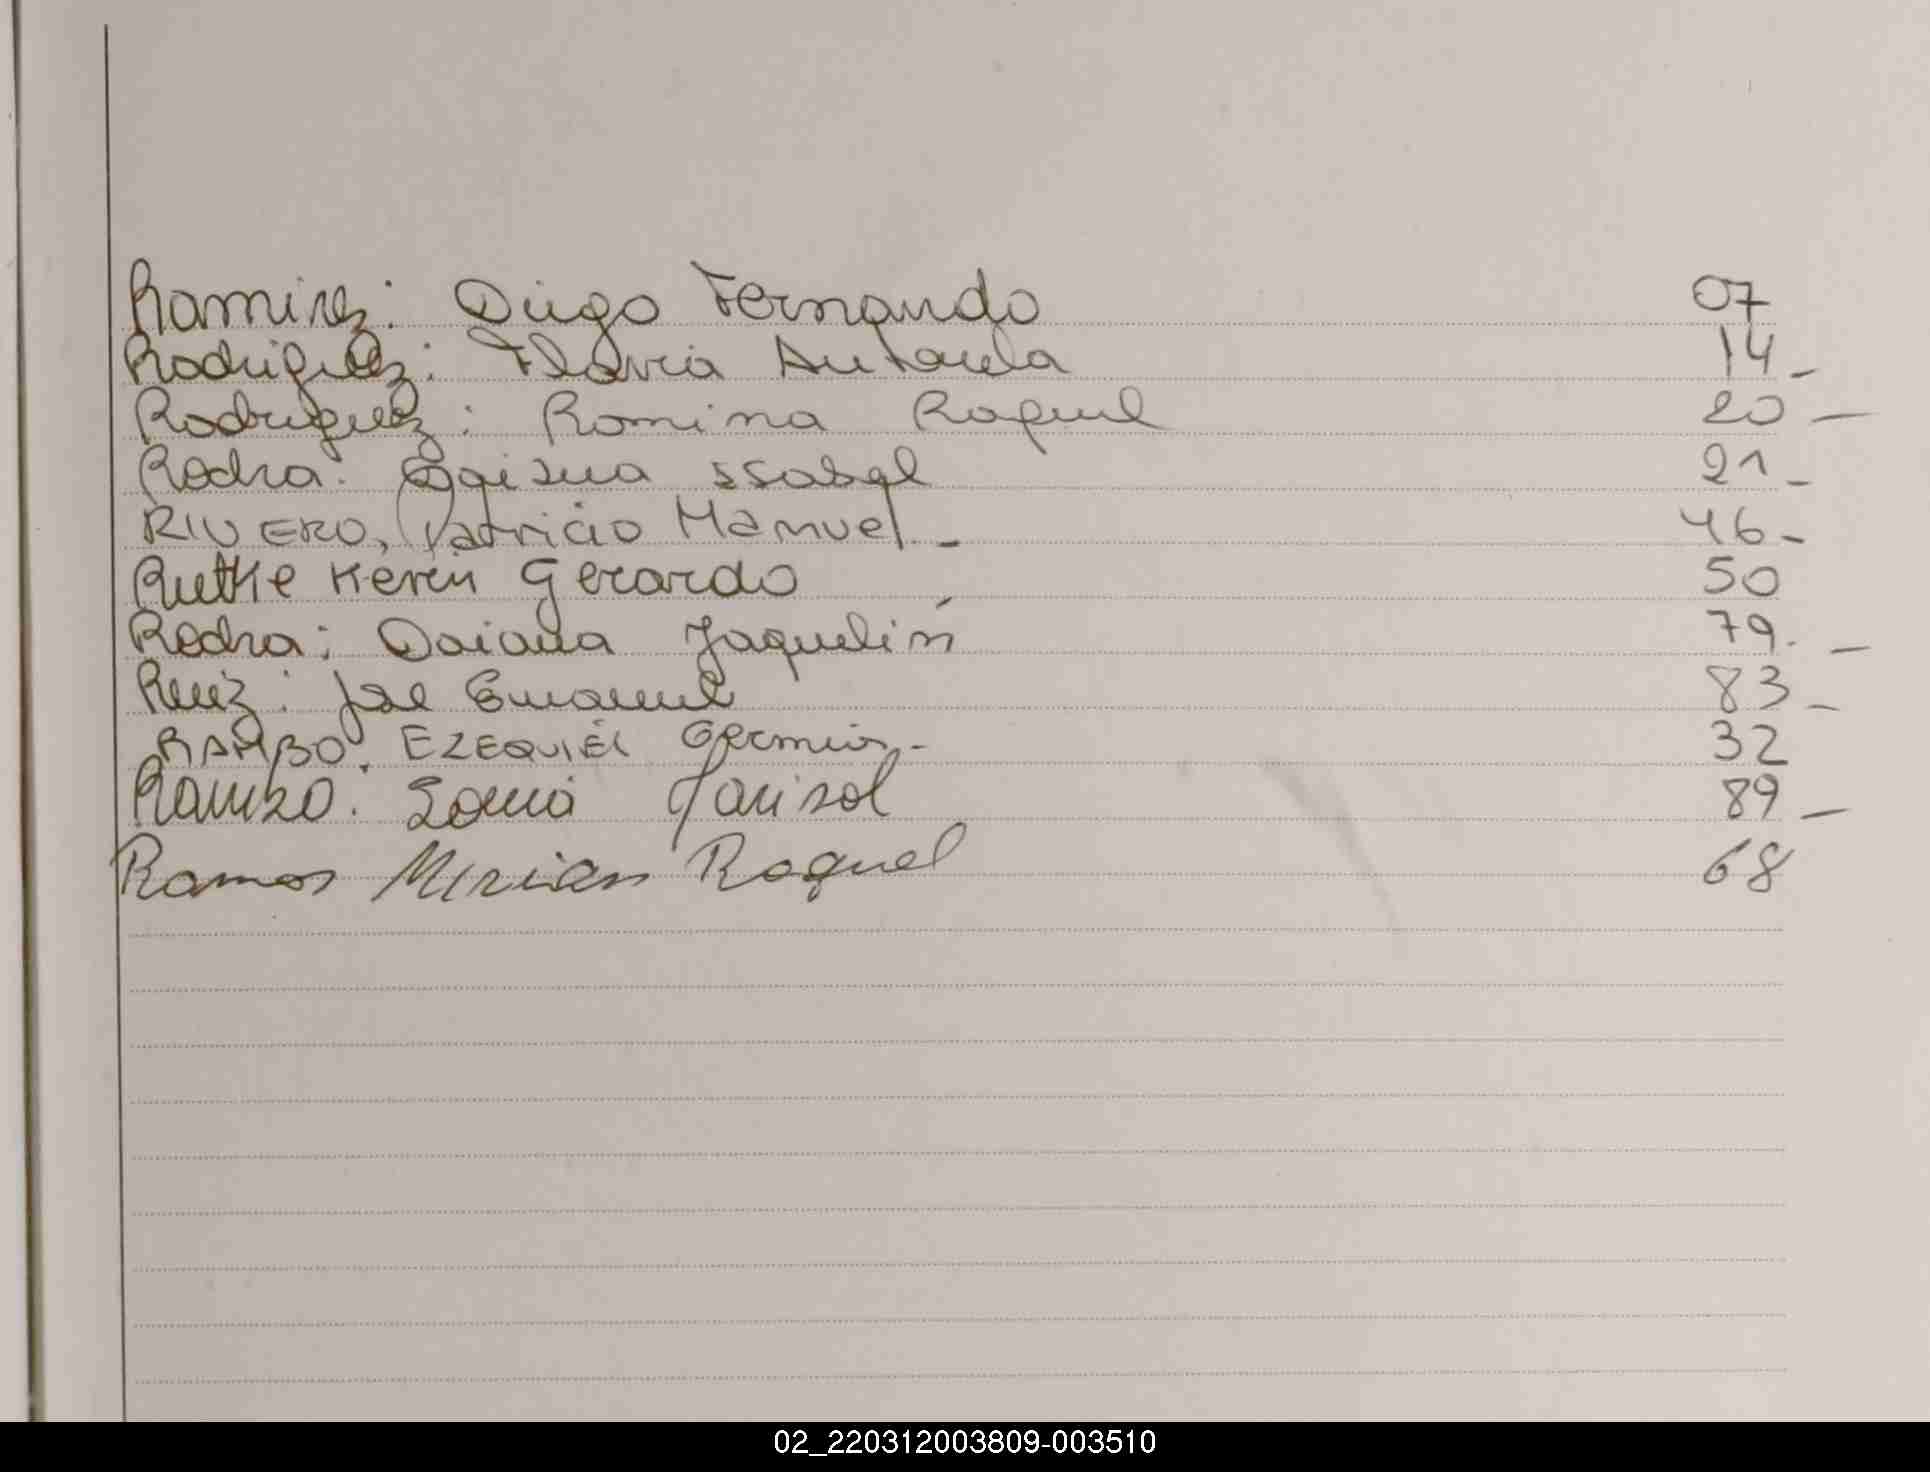 Ramirez: Diego Fernando 07
Rodriguez: Flavia Antonela 14 -
Rodriguez: Romina Raquel 20 -
Rodra. Isabel 21 -
RIVERO, Patricio Manuel. - 46 -
Rutke Kevin Gerardo 50
Rodra: Daiana Jaquelin 79. -
Ruiz: José Emanuel 83 -
RAMBO. EZEQUIEL German. - 32
Ramizo. Sonia Marisol 89 -
Ramos Mirian Raquel 68
02_220312003809-003510